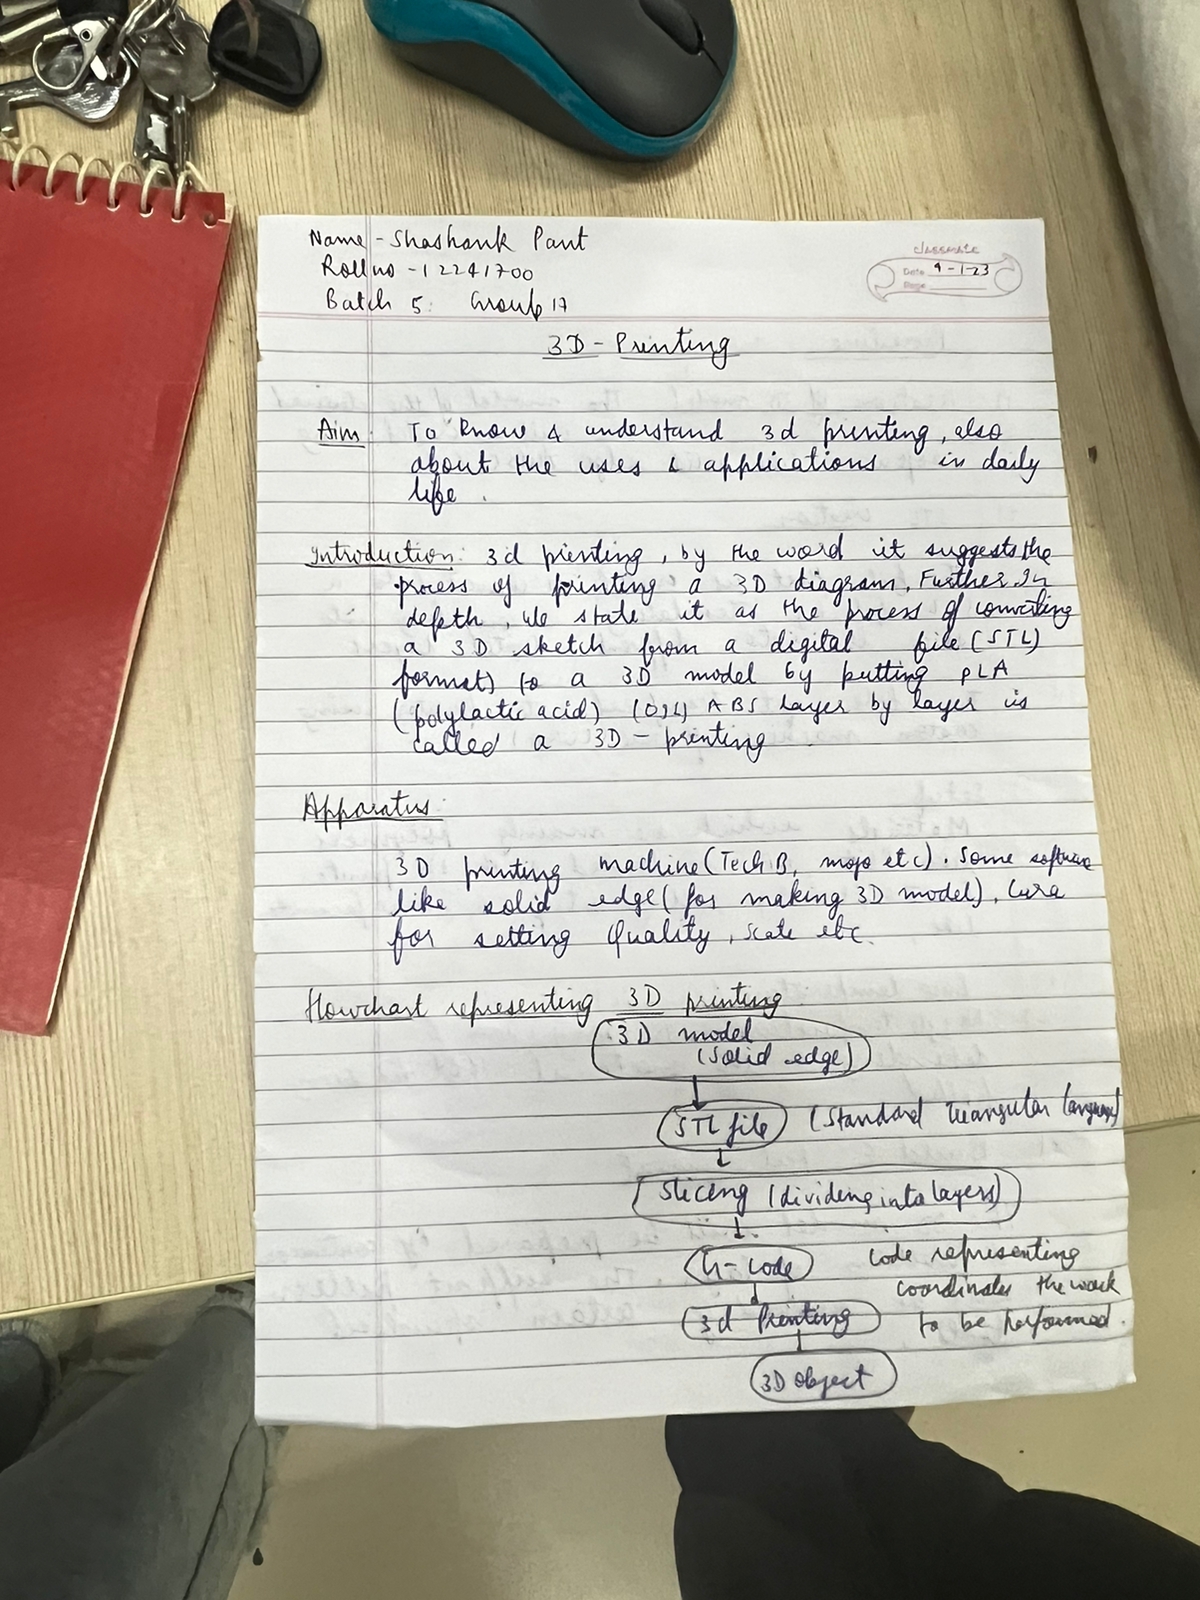 Name - Shashank Pant
classmate
Roll no - 12241700
Date 9-1-23
Page
Batch 5: Group 17
3D - Printing
Aim: To know & understand 3d printing, also
about the uses & applications in daily
life.
Introduction: 3d printing, by the word it suggests the
process of printing a 3D diagram. Further In
depth, We state it as the process of converting
a 3D sketch from a digital file (STL)
format) to a 3D model by putting PLA
(polylactic acid) (or) ABS layer by layer is
called a 3D - printing
Apparatus:
3D printing machine (Tech B, mojo etc). Some software
like solid edge (for making 3D model), Cura
for setting Quality, scale etc.
Flowchart representing 3D printing
3D model
(Solid edge)
STL file (Standard Triangular Language)
Slicing (dividing into layers)
G-code code representing
coordinates the work
3d Printing to be performed.
3D object